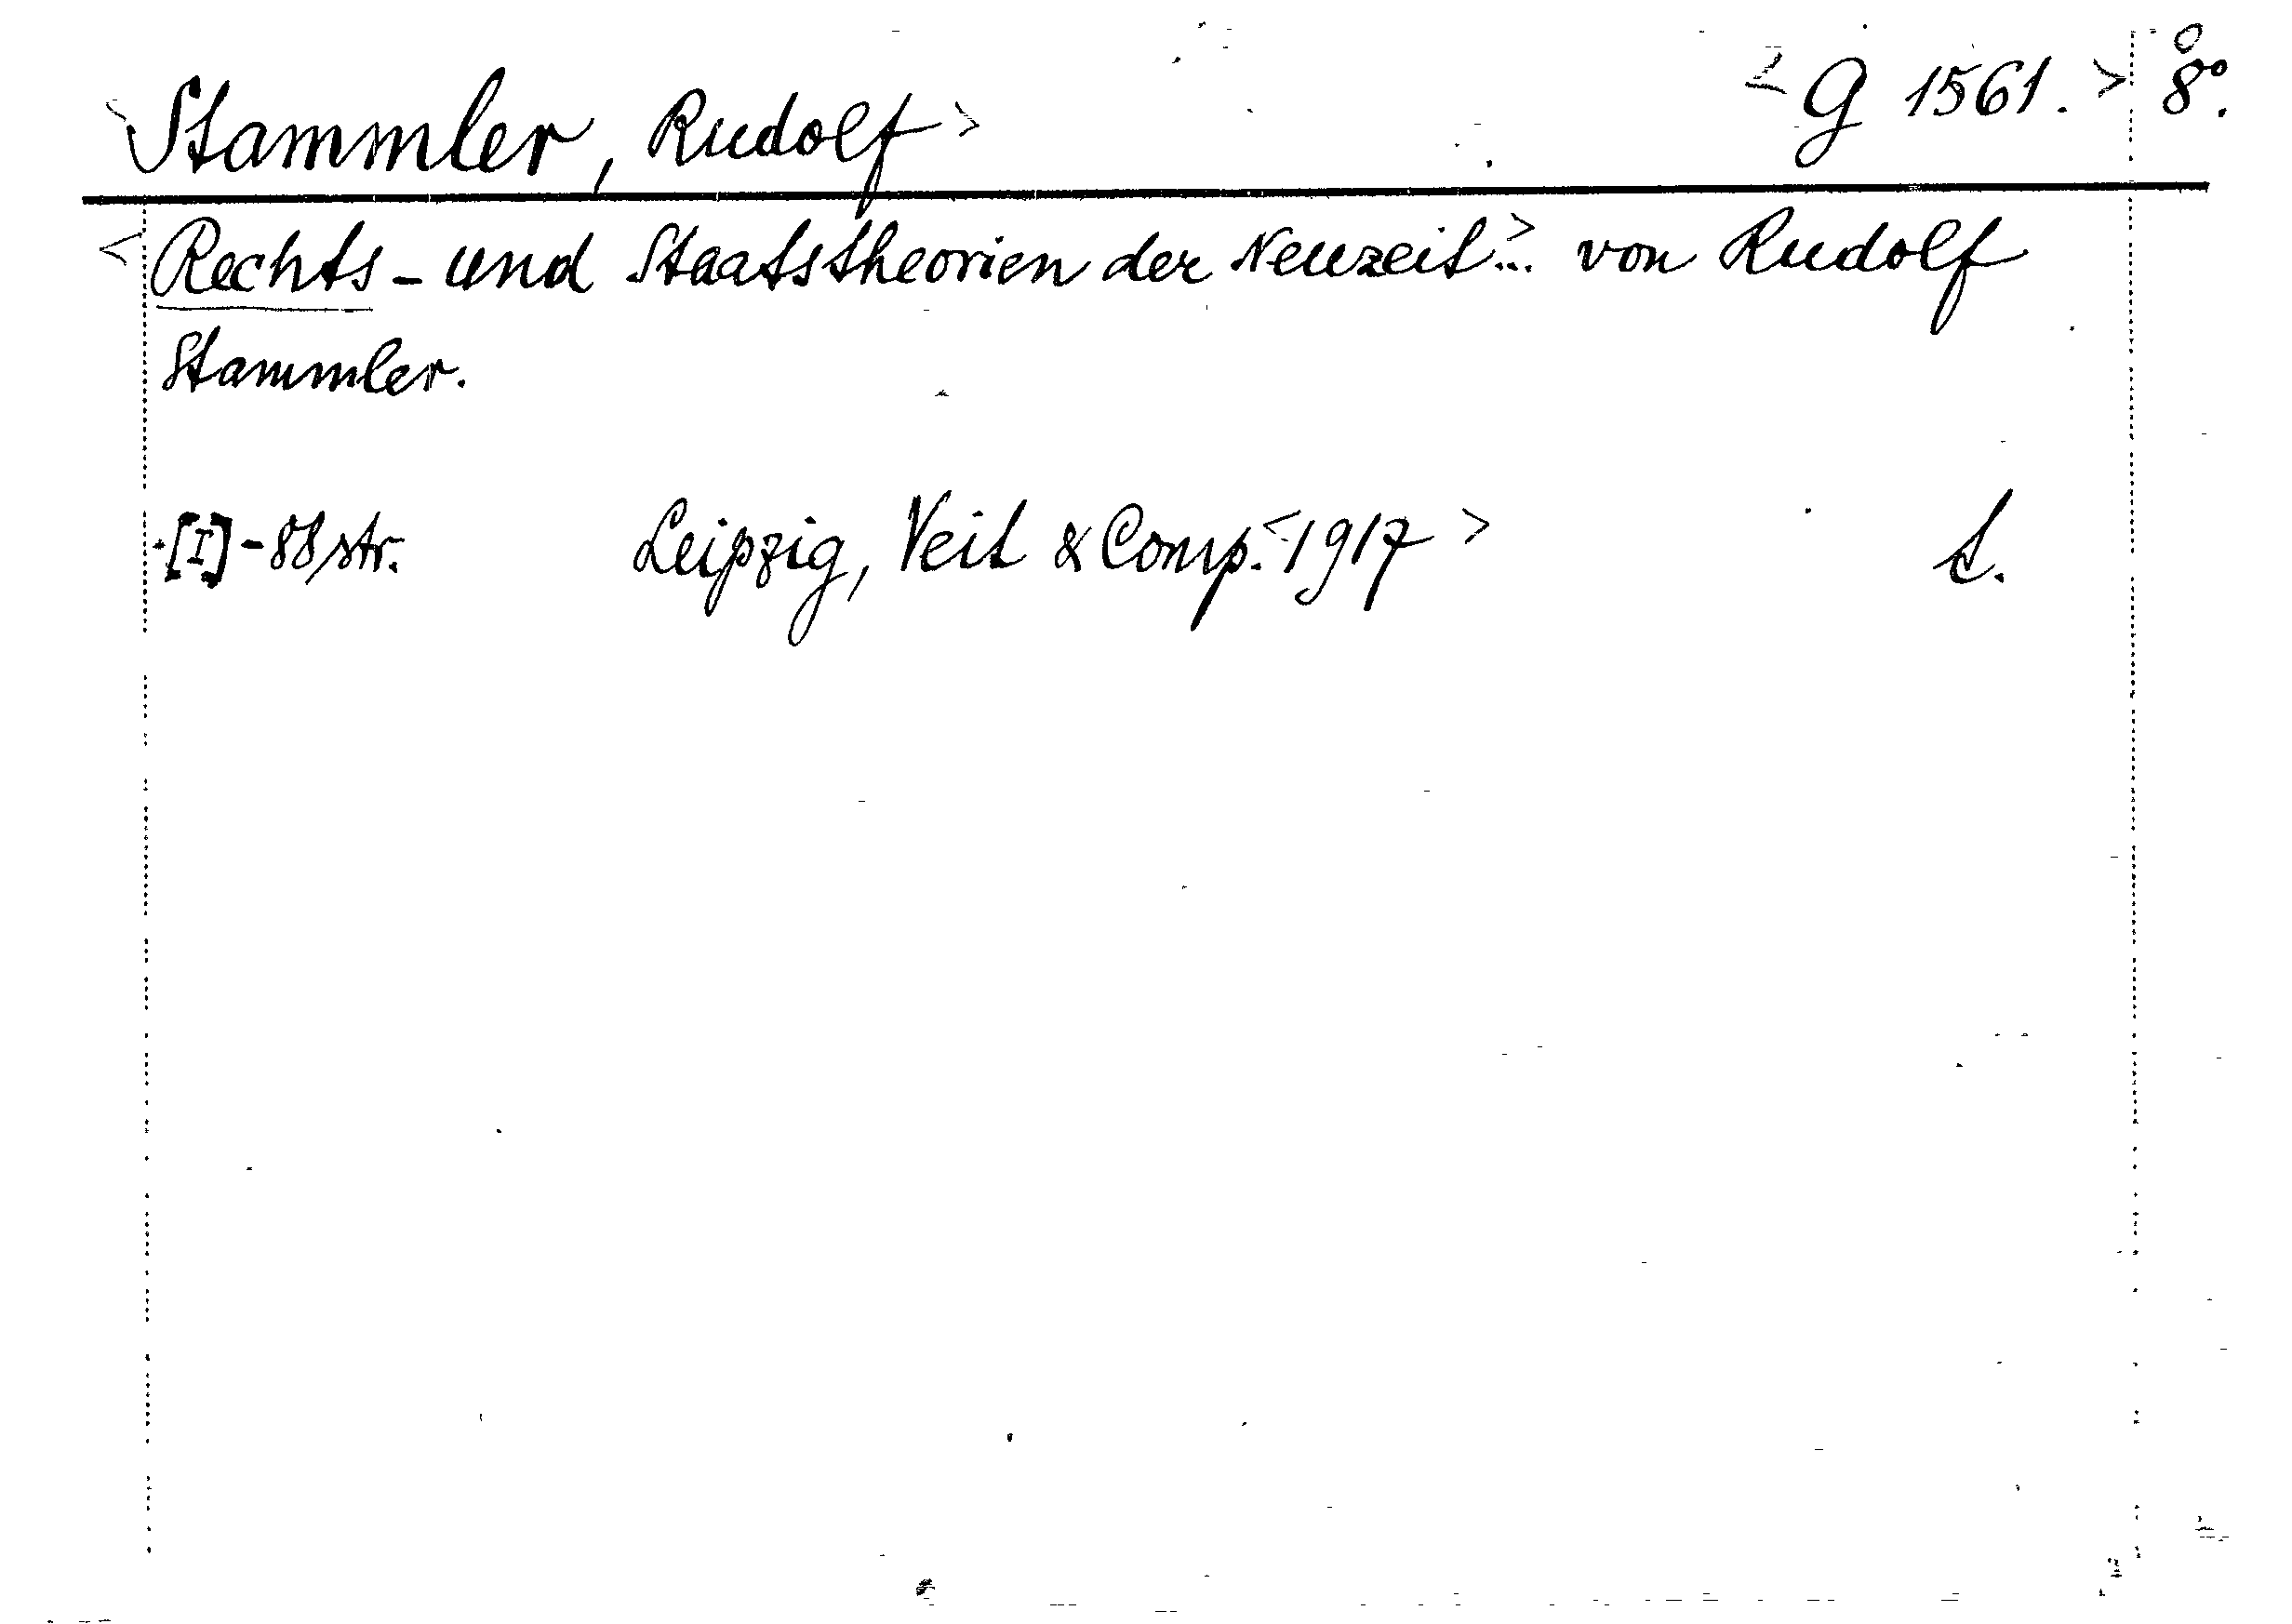 <Stammler, Rudolf> <G 1561.> 8°.
<Rechts- und Staatstheorien der Neuzeit>... von Rudolf
Stammler.
[I]-88 str. Leipzig, Veit & Comp. <1917>